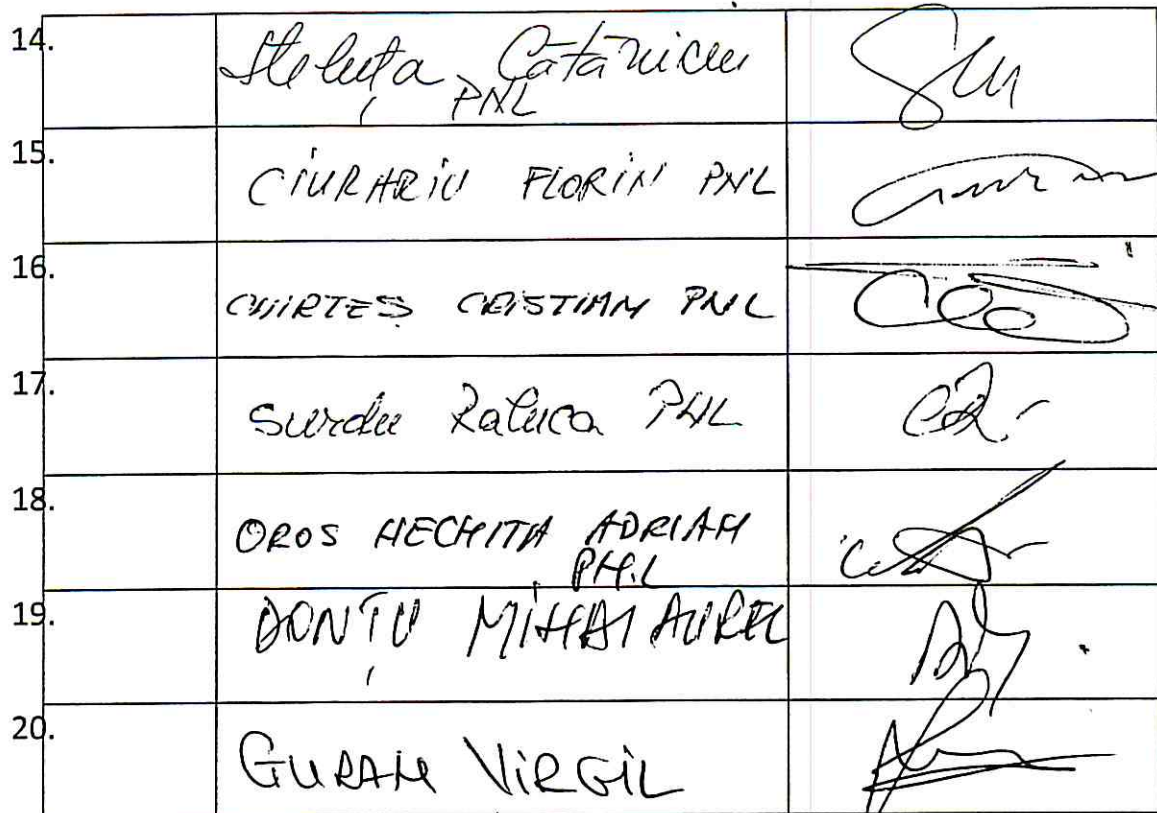 14.
Steluța Cătăniciu
PNL
15.
CIURARIU FLORIN PNL
16.
CHIRTEȘ CRISTIAN PNL
17.
Surdu Raluca PNL
18.
OROS NECHITA ADRIAN
PNL
19.
DONȚU MIHAI AUREL
20.
GURAN VIRGIL